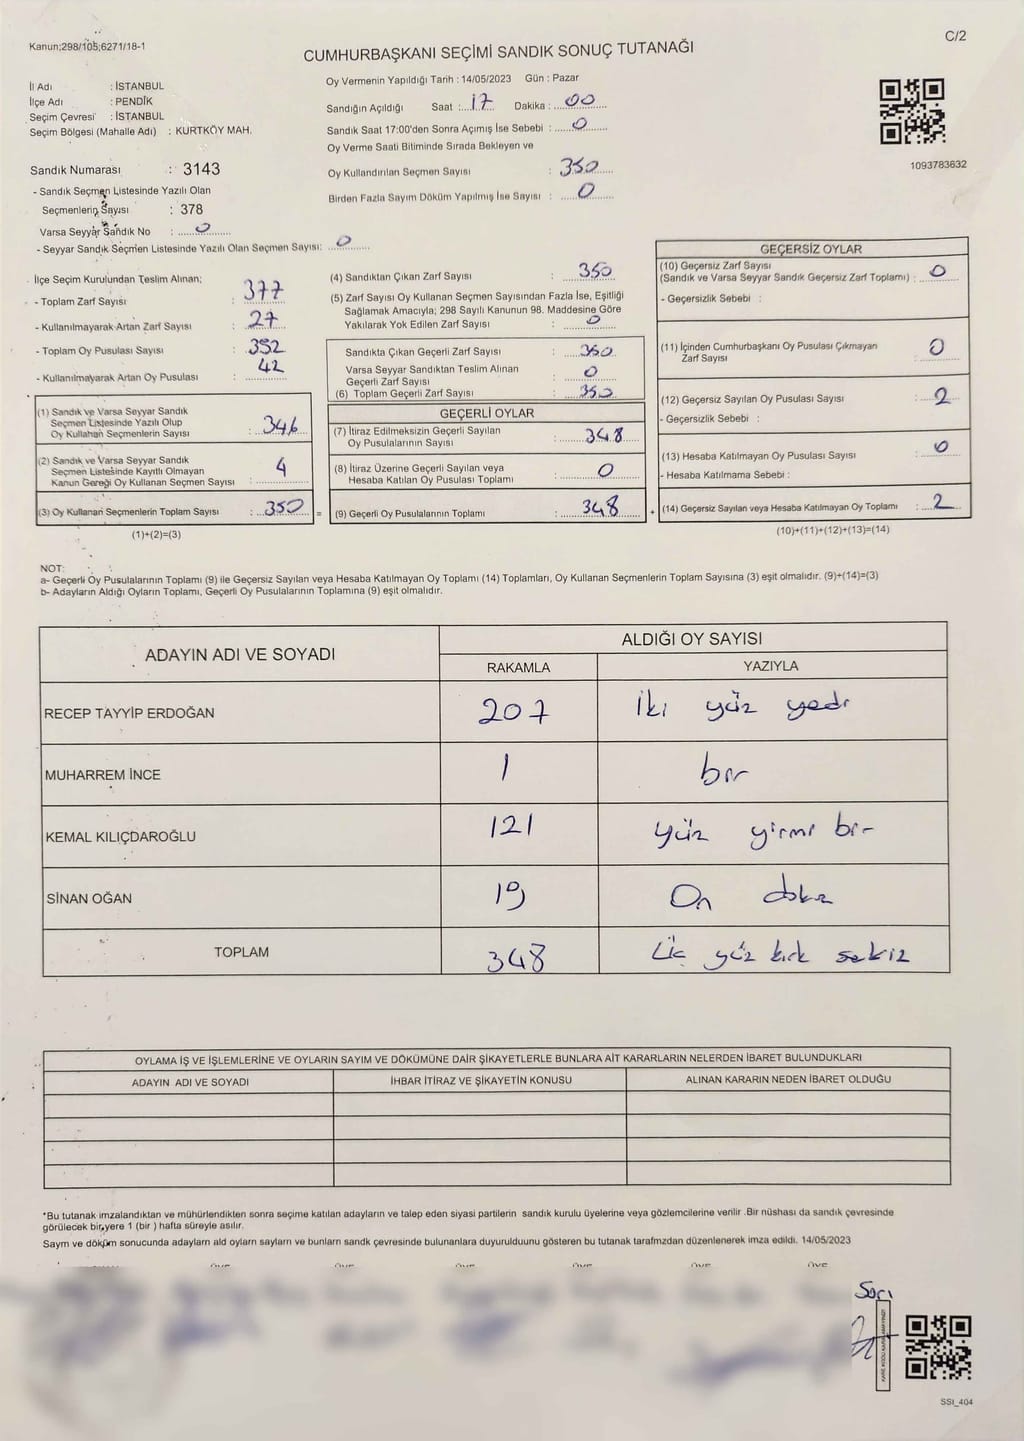 Kanun;298/105;6271/18-1
C/2
CUMHURBAŞKANI SEÇİMİ SANDIK SONUÇ TUTANAĞI
İl Adı : İSTANBUL
İlçe Adı : PENDİK
Seçim Çevresi : İSTANBUL
Seçim Bölgesi (Mahalle Adı) : KURTKÖY MAH.
Oy Vermenin Yapıldığı Tarih : 14/05/2023 Gün : Pazar
Sandığın Açıldığı Saat : 17 Dakika : 00
Sandık Saat 17:00'den Sonra Açımış İse Sebebi : 0
Oy Verme Saati Bitiminde Sırada Bekleyen ve
Oy Kullandırılan Seçmen Sayısı : 350
Birden Fazla Sayım Döküm Yapılmış İse Sayısı : 0
1093783632
Sandık Numarası : 3143
- Sandık Seçmen Listesinde Yazılı Olan
Seçmenlerin Sayısı : 378
Varsa Seyyar Sandık No : 0
- Seyyar Sandık Seçmen Listesinde Yazılı Olan Seçmen Sayısı: 0
İlçe Seçim Kurulundan Teslim Alınan;
- Toplam Zarf Sayısı : 377
- Kullanılmayarak Artan Zarf Sayısı : 27
- Toplam Oy Pusulası Sayısı : 352
- Kullanılmayarak Artan Oy Pusulası : 42
(1) Sandık ve Varsa Seyyar Sandık
Seçmen Listesinde Yazılı Olup
Oy Kullanan Seçmenlerin Sayısı : 346
(2) Sandık ve Varsa Seyyar Sandık
Seçmen Listesinde Kayıtlı Olmayan
Kanun Gereği Oy Kullanan Seçmen Sayısı : 4
(3) Oy Kullanan Seçmenlerin Toplam Sayısı : 350 =
(1)+(2)=(3)
(4) Sandıktan Çıkan Zarf Sayısı : 350
(5) Zarf Sayısı Oy Kullanan Seçmen Sayısından Fazla İse, Eşitliği
Sağlamak Amacıyla; 298 Sayılı Kanunun 98. Maddesine Göre
Yakılarak Yok Edilen Zarf Sayısı : 0
Sandıkta Çıkan Geçerli Zarf Sayısı : 350
Varsa Seyyar Sandıktan Teslim Alınan
Geçerli Zarf Sayısı : 0
(6) Toplam Geçerli Zarf Sayısı : 350
GEÇERLİ OYLAR
(7) İtiraz Edilmeksizin Geçerli Sayılan
Oy Pusulalarının Sayısı : 348
(8) İtiraz Üzerine Geçerli Sayılan veya
Hesaba Katılan Oy Pusulası Toplamı : 0
(9) Geçerli Oy Pusulalarının Toplamı : 348 +
GEÇERSİZ OYLAR
(10) Geçersiz Zarf Sayısı
(Sandık ve Varsa Seyyar Sandık Geçersiz Zarf Toplamı) : 0
- Geçersizlik Sebebi :
(11) İçinden Cumhurbaşkanı Oy Pusulası Çıkmayan
Zarf Sayısı : 0
(12) Geçersiz Sayılan Oy Pusulası Sayısı : 2
- Geçersizlik Sebebi :
(13) Hesaba Katılmayan Oy Pusulası Sayısı : 0
- Hesaba Katılmama Sebebi :
(14) Geçersiz Sayılan veya Hesaba Katılmayan Oy Toplamı : 2
(10)+(11)+(12)+(13)=(14)
NOT:
a- Geçerli Oy Pusulalarının Toplamı (9) ile Geçersiz Sayılan veya Hesaba Katılmayan Oy Toplamı (14) Toplamları, Oy Kullanan Seçmenlerin Toplam Sayısına (3) eşit olmalıdır. (9)+(14)=(3)
b- Adayların Aldığı Oyların Toplamı, Geçerli Oy Pusulalarının Toplamına (9) eşit olmalıdır.
ADAYIN ADI VE SOYADI ALDIĞI OY SAYISI
RAKAMLA YAZIYLA
RECEP TAYYİP ERDOĞAN 207 İki yüz yedi
MUHARREM İNCE 1 bir
KEMAL KILIÇDAROĞLU 121 yüz yirmi bir
SİNAN OĞAN 19 On dokuz
TOPLAM 348 Üç yüz kırk sekiz
OYLAMA İŞ VE İŞLEMLERİNE VE OYLARIN SAYIM VE DÖKÜMÜNE DAİR ŞİKAYETLERLE BUNLARA AİT KARARLARIN NELERDEN İBARET BULUNDUKLARI
ADAYIN ADI VE SOYADI İHBAR İTİRAZ VE ŞİKAYETİN KONUSU ALINAN KARARIN NEDEN İBARET OLDUĞU
*Bu tutanak imzalandıktan ve mühürlendikten sonra seçime katılan adayların ve talep eden siyasi partilerin sandık kurulu üyelerine veya gözlemcilerine verilir .Bir nüshası da sandık çevresinde
görülecek bir yere 1 (bir ) hafta süreyle asılır.
Saym ve döküm sonucunda adaylarn ald oylarn saylarn ve bunlarn sandk çevresinde bulunanlara duyurulduunu gösteren bu tutanak tarafmzdan düzenlenerek imza edildi. 14/05/2023
SSI_404